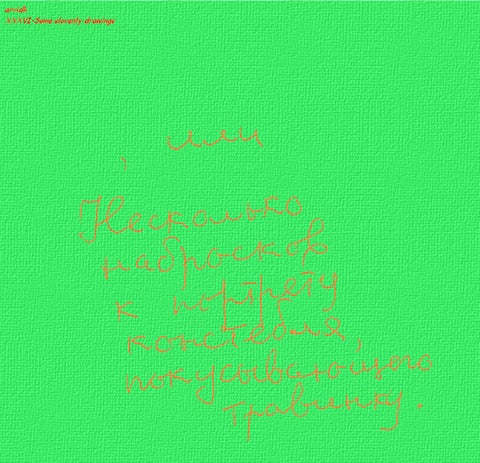 anndk
XXXVI-Some slovenly drawings
, или
Несколько
набросков
к портрету
констебля,
покусывающего
травинку.